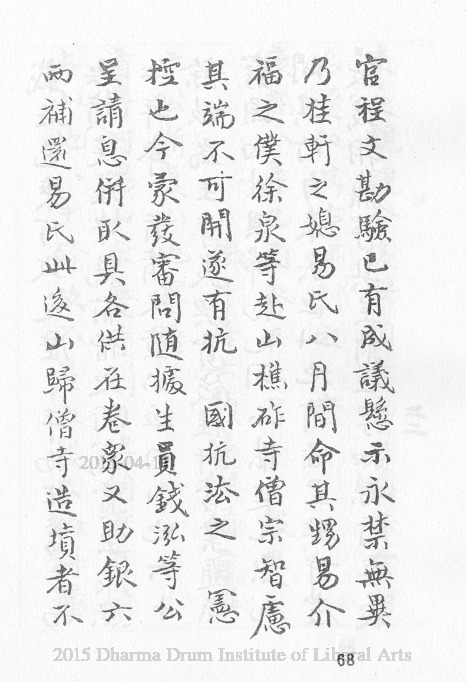 官程文勘驗已有成議懸示永禁無異
乃桂軒之媳易氏八月間命其甥易介
福之僕徐泉等赴山樵砟寺僧宗智慮
其端不可開遂有抗 國抗法之 憲
控也今蒙發審問随據生員錢泓等公
呈請息併取具各供在卷眾又助銀六
兩補還易氏此後山歸僧寺造墳者不
68
2015 Dharma Drum Institute of Liberal Arts